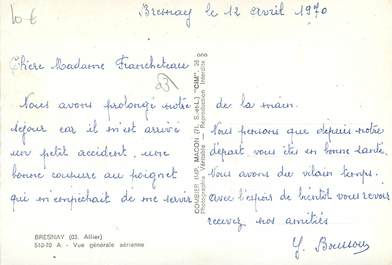 10 €
Bresnay le 12 avril 1970
Chère Madame Francheteau
Nous avons prolongé notre
séjour car il m'est arrivé
un petit accident, une
bonne coupure au poignet
qui m'empêchait de me servir
de la main.
Nous pensons que depuis votre
départ, vous êtes en bonne santé.
Nous avons du vilain temps.
Avec l'espoir de bientôt vous revoir
recevez nos amitiés
Y.
COMBIER IMP. MACON (71, S.-et-L.) "CIM"
Photographie Véritable - Reproduction Interdite
BRESNAY (03. Allier)
510-70 A. - Vue générale aérienne